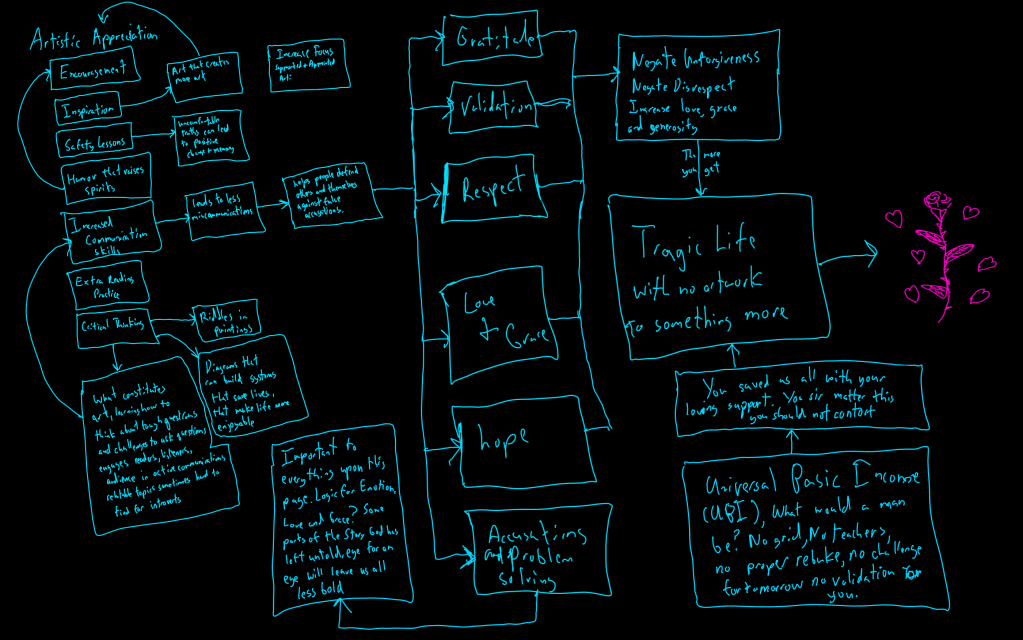 Artistic Appreciation
Encouragement
Inspiration
Safety Lessons
Humor that raises
spirits
Increased
Communication
skills
Extra Reading
Practice
Critical Thinking
What constitutes
art, learning how to
think about tough questions
and challenges to ask questions
engages readers, listeners,
audience in active communications
relatable topics sometimes hard to
find for introverts
Art that creates
more art
uncomfortable
truths can lead
to positive
change + memory
leads to less
miscommunications
Riddles in
paintings
Diagrams that
can build systems
that save lives,
that make life more
enjoyable
Increase Focus
Art:
helps people defend
others and themselves
against false
accusations.
Important to
everything upon this
page. Logic for Emotion,
Love and Grace? Some
parts of the Story God has
left untold, eye for an
eye will leave us all
less bold
Gratitude
Validation
Respect
Love
+
Grace
hope
Accusations
and Problem
solving
Negate Unforgiveness
Negate Disrespect
Increase love, grace
and generosity
The more
you get
Tragic Life
with no artwork
to something more
You saved us all with your
loving support. You sir matter this
you should not contort
Universal Basic Income
(UBI), What would a man
be? No grid, No teachers,
no proper rebuke, no challenge
for tomorrow no validation for
you.